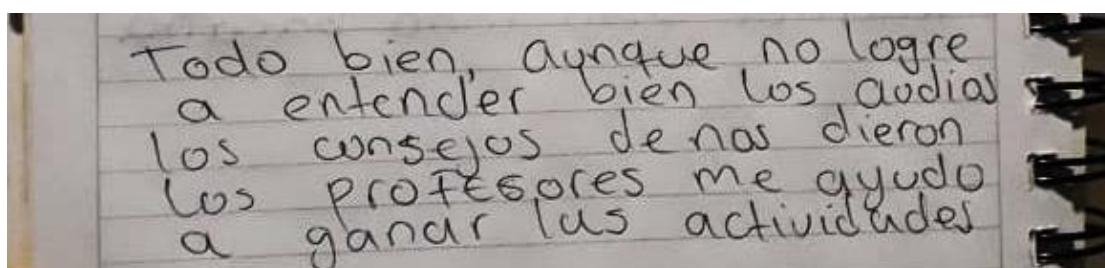 Todo bien, aunque no logre
a entender bien los audios
los consejos de nos dieron
los profesores me ayudo
a ganar las actividades